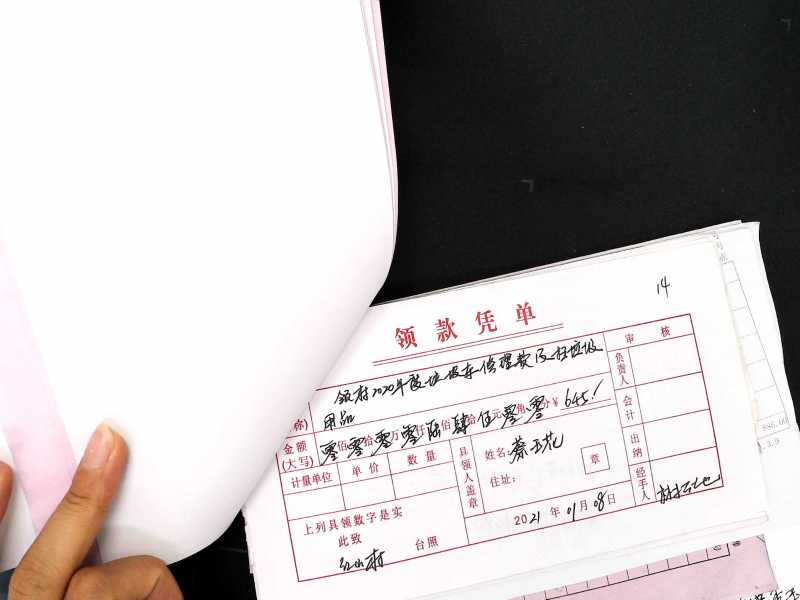 14
领款凭单
审核
称)
领村2020年度垃圾车修理款及扫垃圾
用品
负责人
金额
(大写)
零佰零拾零万零仟陆佰肆拾伍元零角零分¥ 645.1
会计
计量单位 单价 数量
具领人盖章
姓名: 蔡玉花
住址:
章
出纳
经手人
上列具领数字是实
此致
台照
2021年01月08日
886.00